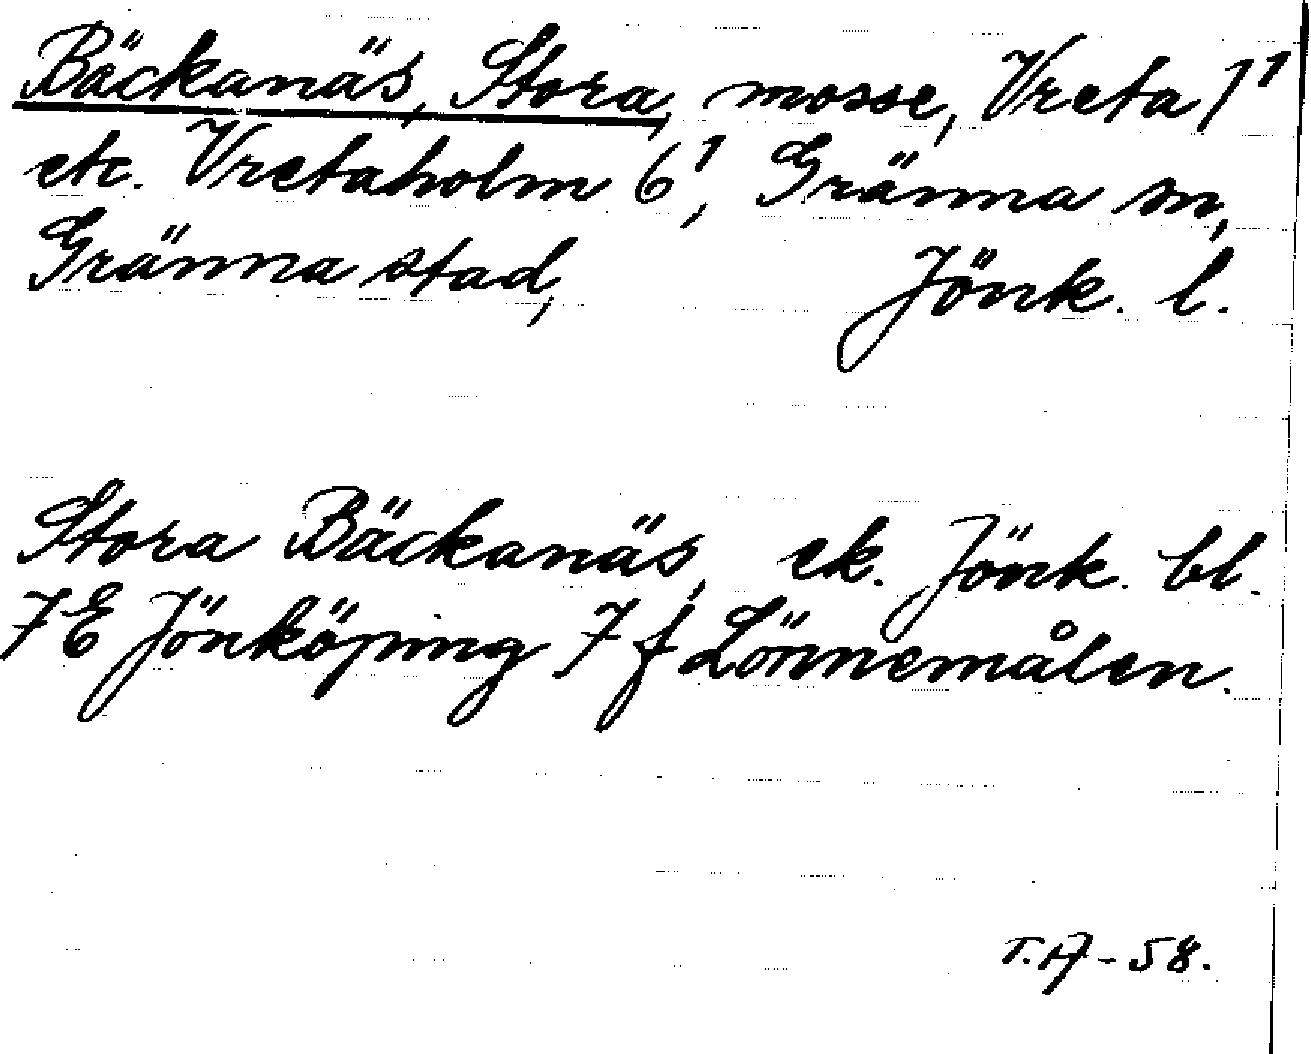 Bäckanäs, Stora, mosse, Vreta 1¹
etc. Vretaholm 6¹, Gränna sn,
Gränna stad, Jönk. l.
Stora Bäckanäs, ek. Jönk. bl.
7E Jönköping 7f Lönnemålen.
T.A-58.